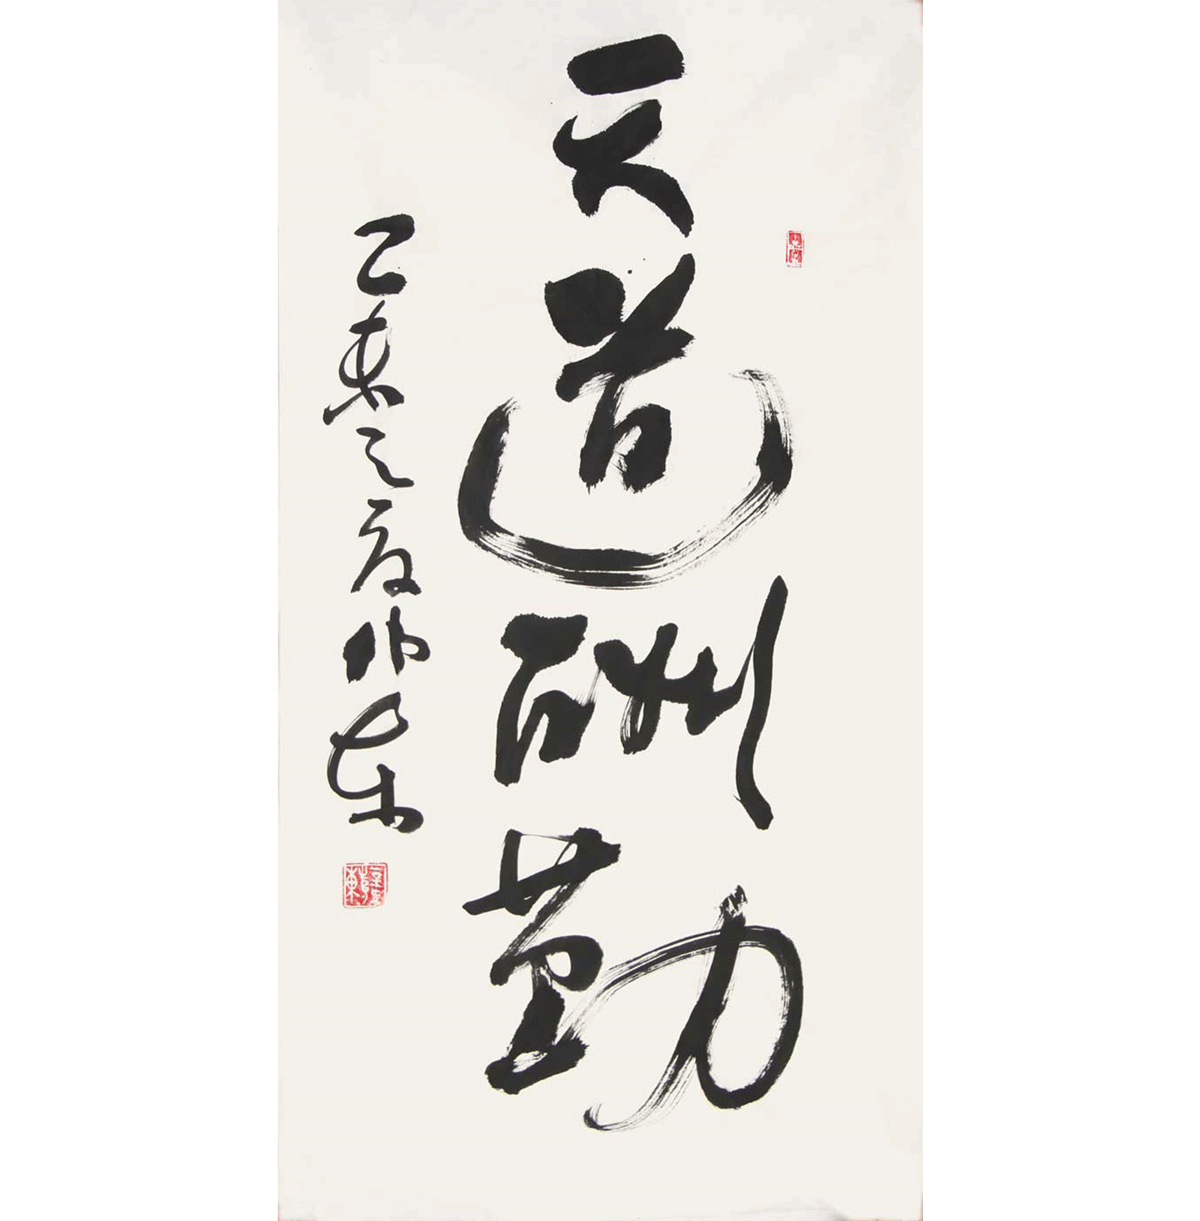 天道酬勤
乙未之夏帅东